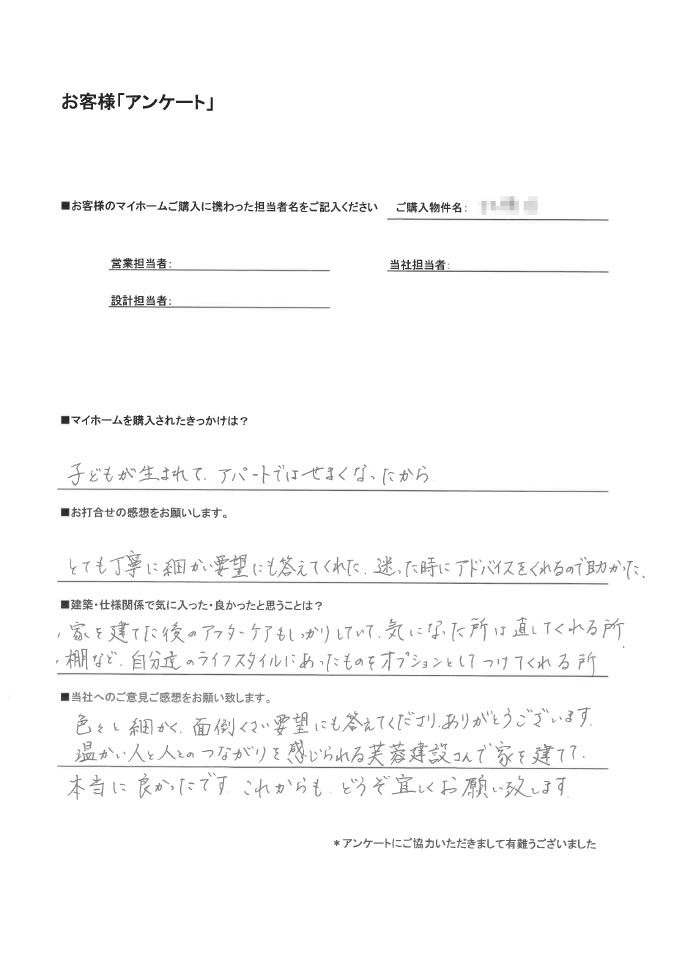 お客様「アンケート」
■お客様のマイホームご購入に携わった担当者名をご記入ください ご購入物件名:
営業担当者: 当社担当者:
設計担当者:
■マイホームを購入されたきっかけは?
子どもが生まれて、アパートではせまくなったから
■お打合せの感想をお願いします。
とても丁寧に細かい要望にも答えてくれた。迷った時にアドバイスをくれるので助かった。
■建築・仕様関係で気に入った・良かったと思うことは?
・家を建てた後のアフターケアもしっかりしていて、気になった所は直してくれる所
・棚など、自分達のライフスタイルにあったものをオプションとしてつけてくれる所
■当社へのご意見ご感想をお願い致します。
色々と細かく、面倒くさい要望にも答えてくださり、ありがとうございます。
温かい人と人とのつながりを感じられる芙蓉建設さんで家を建てて、
本当に良かったです。これからも、どうぞ宜しくお願い致します。
*アンケートにご協力いただきまして有難うございました